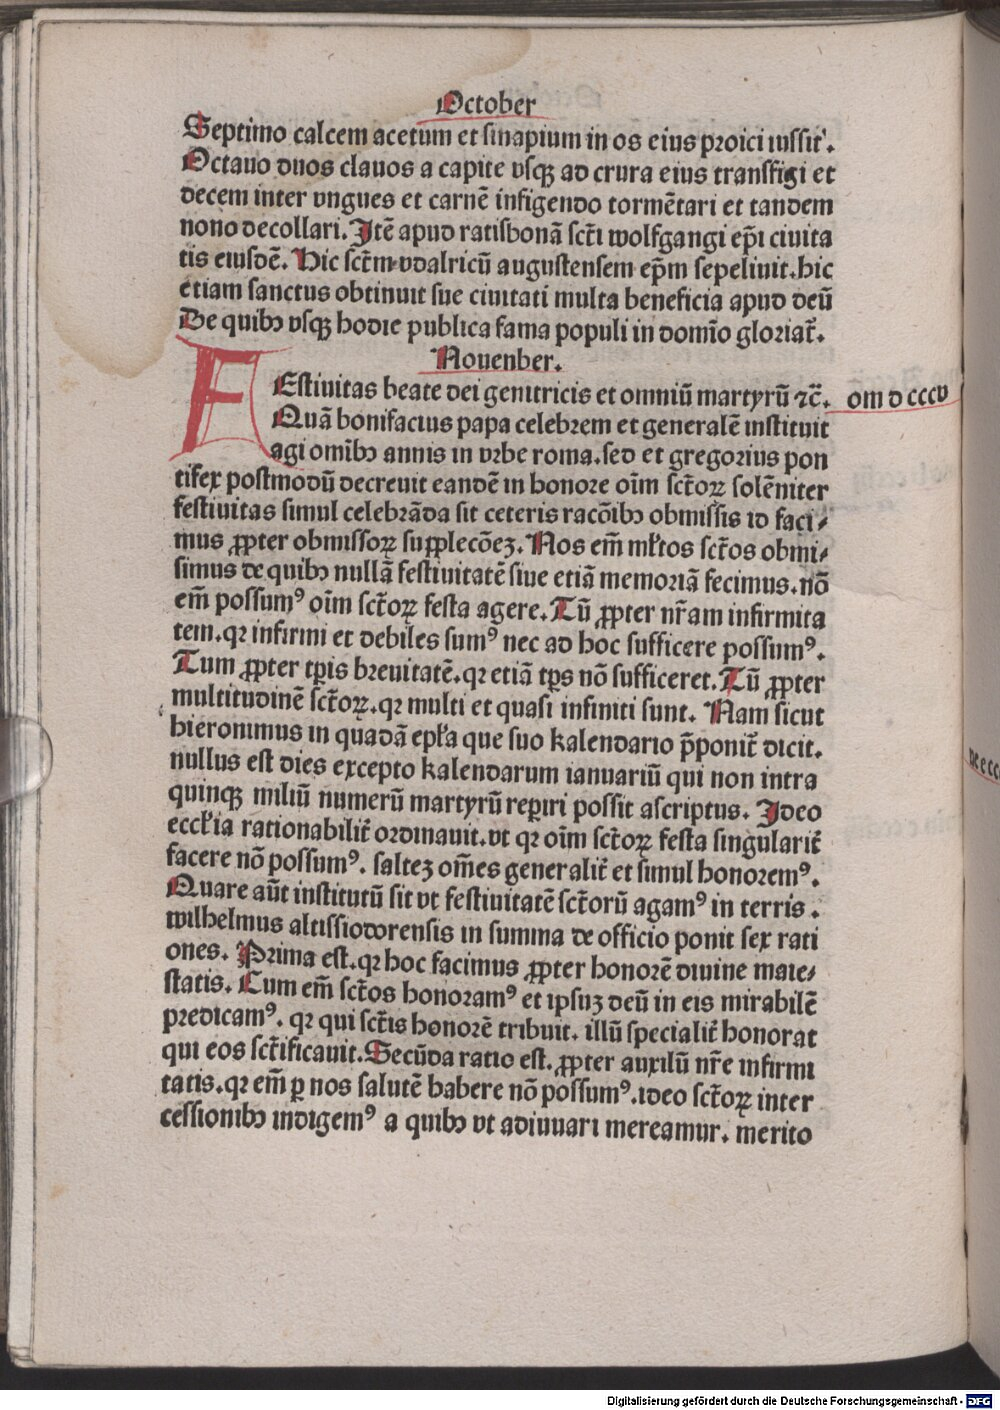 October
Septimo calcem acetum et sinapium in os eius proici iussit.
Octauo duos clauos a capite vsqꝫ ad crura eius transfigi et
decem inter vngues et carnē infigendo tormētari et tandem
nono decollari. Itē apud ratisbonā sct̄i wolfgangi ep̄i ciuita
tis eiusdē. Hic sct̄m vdalricū augustensem ep̄m sepeliuit. hic
etiam sanctus obtinuit sue ciuitati multa beneficia apud deū
De quibꝯ vsqꝫ hodie publica fama populi in domīo gloriat̄.
Nouenber.
FEstiuitas beate dei genitricis et omniū martyrū ⁊c̄. om d cccv
Quā bonifacius papa celebrem et generalē instituit
agi omībꝯ annis in vrbe roma. sed et gregorius pon
tifex postmodū decreuit eandē in honore oīm sct̄oꝝ solēniter
festiuitas simul celebrāda sit ceteris racōibꝯ obmissis id faci⸗
mus ꝓpter obmissoꝝ supplecōeꝫ. Nos em̄ ml̄tos sct̄os obmi⸗
simus de quibꝯ nullā festiuitatē siue etiā memoriā fecimus. nō
em̄ possumꝰ oīm sct̄oꝝ festa agere. Tū ꝓpter nr̄am infirmita
tem. qꝛ infirmi et debiles sumꝰ nec ad hoc sufficere possumꝰ.
Tum ꝓpter tꝑis breuitatē. qꝛ etiā tꝑs nō sufficeret. Tū ꝓpter
multitudinē sct̄oꝝ. qꝛ multi et quasi infiniti sunt. Nam sicut
hieronimus in quadā epl̄a que suo kalendario p̄ponit̄ dicit.
nullus est dies excepto kalendarum ianuariū qui non intra
quinqꝫ miliū numerū martyrū reꝑiri possit ascriptus. Ideo
eccl̄ia rationabilit̄ ordinauit. vt qꝛ oīm sct̄oꝝ festa singularit̄
facere nō possumꝰ. salteꝫ om̄es generalit̄ et simul honoremꝰ.
Quare aūt institutū sit vt festiuitatē sct̄orū agamꝰ in terris.
wilhelmus altissiodorensis in summa de officio ponit sex rati
ones. Prima est. qꝛ hoc facimus ꝓpter honorē diuine maie⸗
statis. Cum em̄ sct̄os honoramꝰ et ipsuꝫ deū in eis mirabilē
predicamꝰ. qꝛ qui sct̄is honorē tribuit. illū specialit̄ honorat
qui eos sct̄ificauit. Secūda ratio est. ꝓpter auxiliū nr̄e infirmi
tatis. qꝛ em̄ ꝑ nos salutē habere nō possumꝰ. ideo sct̄oꝝ inter
cessionibꝯ indigemꝰ a quibꝯ vt adiuuari mereamur. merito
Digitalisierung gefördert durch die Deutsche Forschungsgemeinschaft - DFG